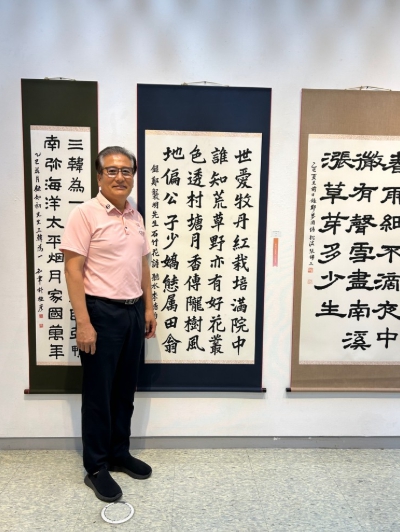 春雨細不滴夜中
微有聲雪盡南溪
漲草芽多少生
世愛牡丹紅栽培滿院中
誰知荒草野亦有好花叢
色透村塘月香傳隴樹風
地偏公子少嬌態属田翁
錄鄭襲明先生石竹花詩
三韓為一 鴨
南弥海洋太平烟月家國萬年